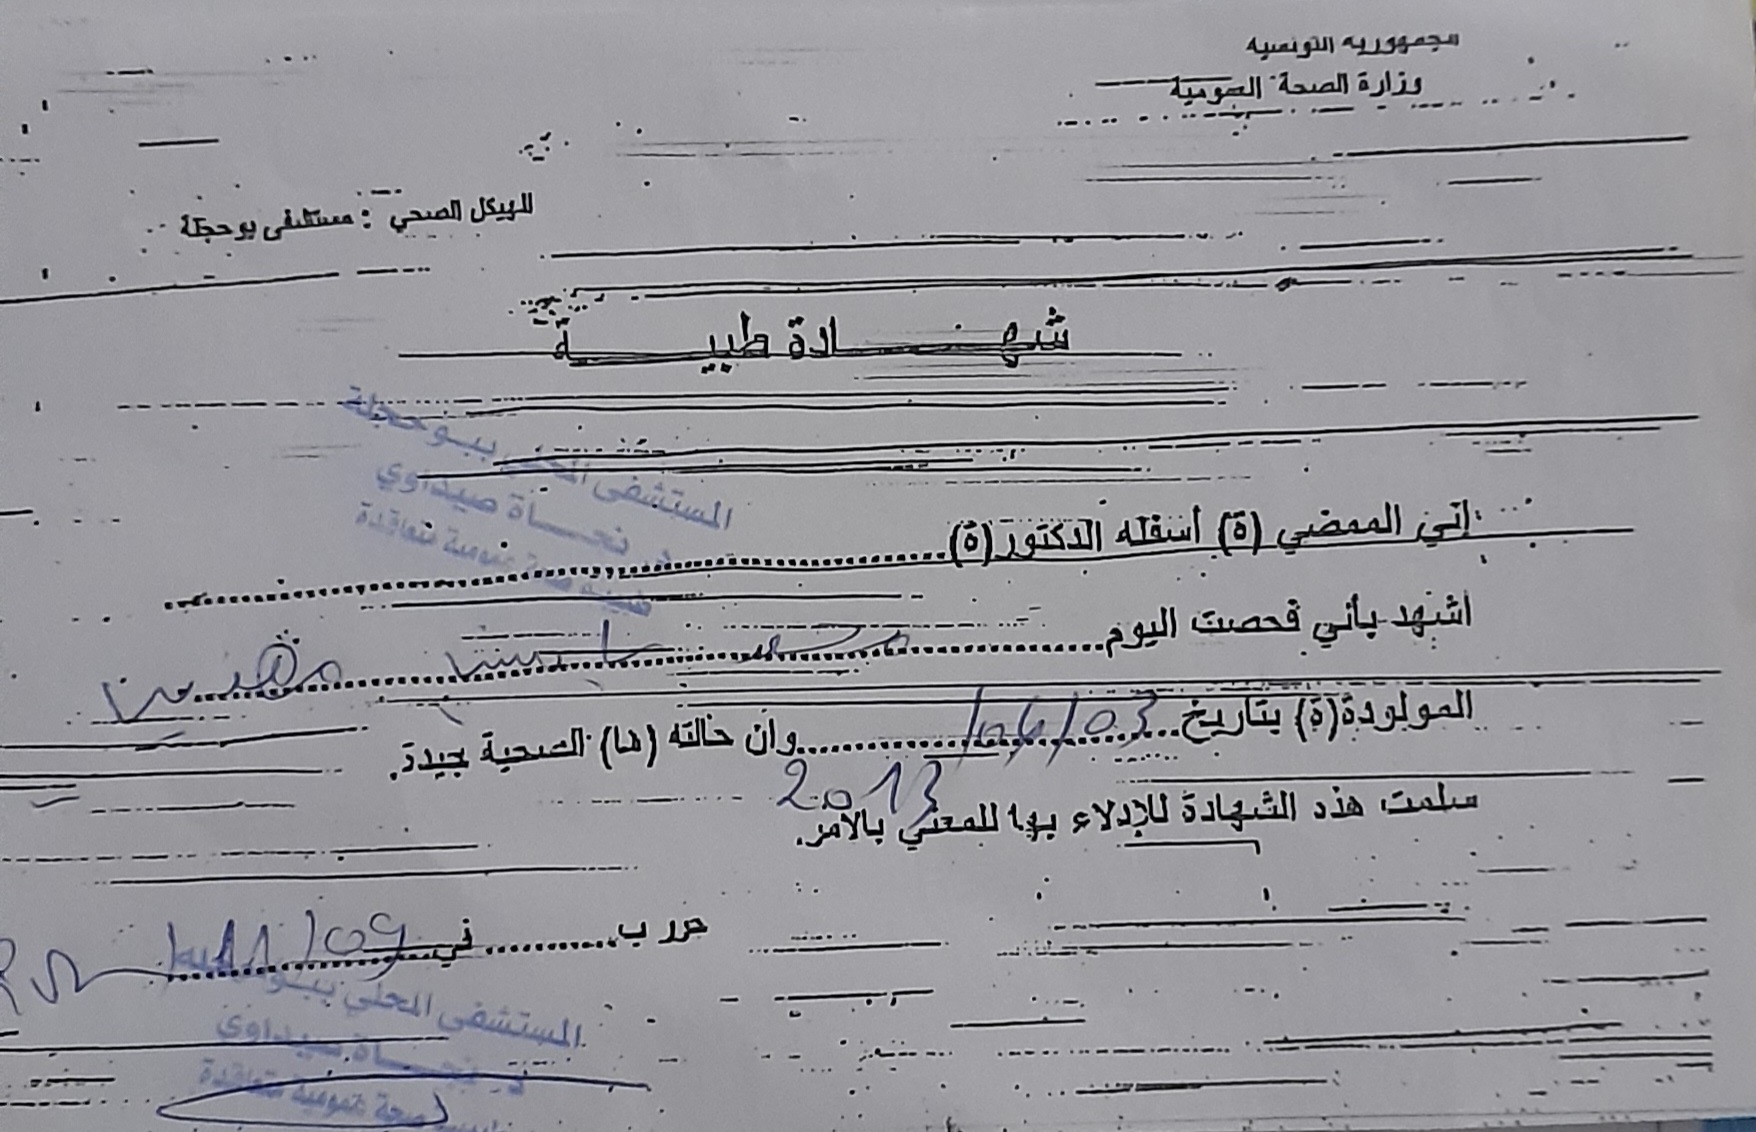 جمهورية التونسية
وزارة الصحة العمومية
الهيكل الصحي : مستشفى بوحجلة
شهـــادة طبيـــة
المستشفى المحلي ببوحجلة
د. نجــاة صيداوي
طبيبة صحة عمومية متعاقدة
إني الممضي (ة) أسفله الدكتور(ة)
أشهد بأني فحصت اليوم محمد ياسين
المولودة(ة) بتاريخ 03/06/ 2013 وان حالته (ها) الصحية جيدة.
سلمت هذه الشهادة للإدلاء بها للمعني بالأمر.
حرر ب........... في 09/11/
المستشفى المحلي ببو
د. نجــاة صيداوي
صحة عمومية متعاقدة